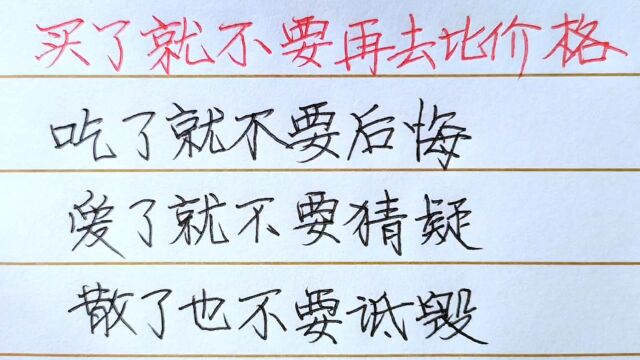 买了就不要再去比价格
吃了就不要后悔
爱了就不要猜疑
散了也不要诋毁